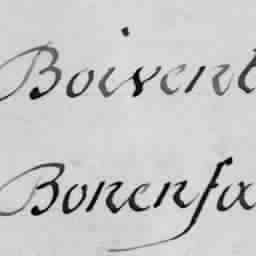 Boivent
Bonenfa